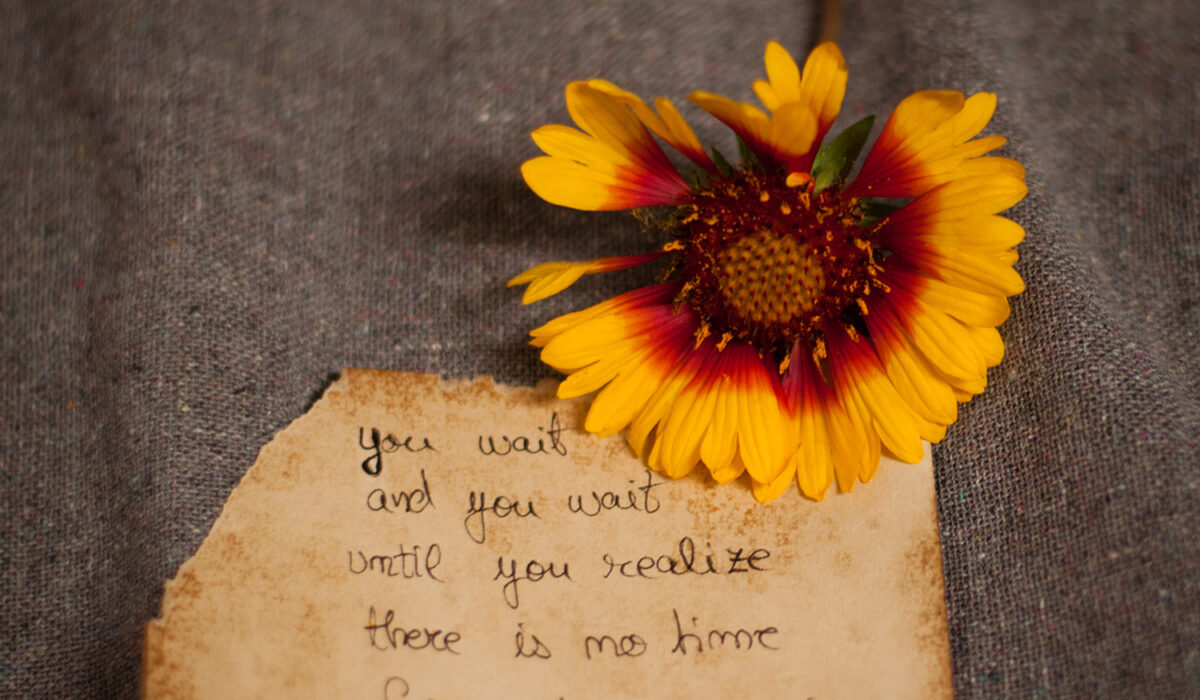 you wait
and you wait
until you realize
there is no time